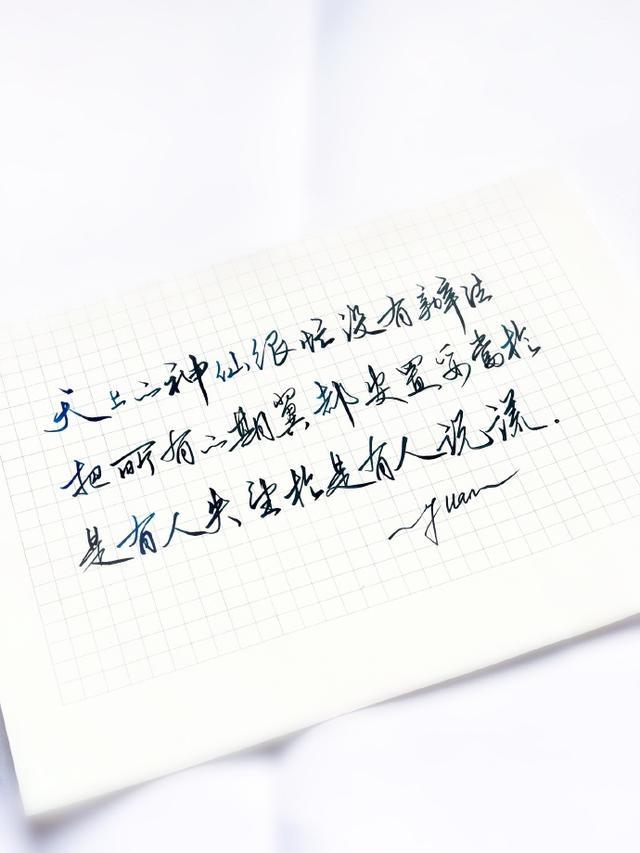 天上的神仙很忙没有辦法
把所有的期翼都安置妥當於
是有人失望於是有人说谎.
yuan